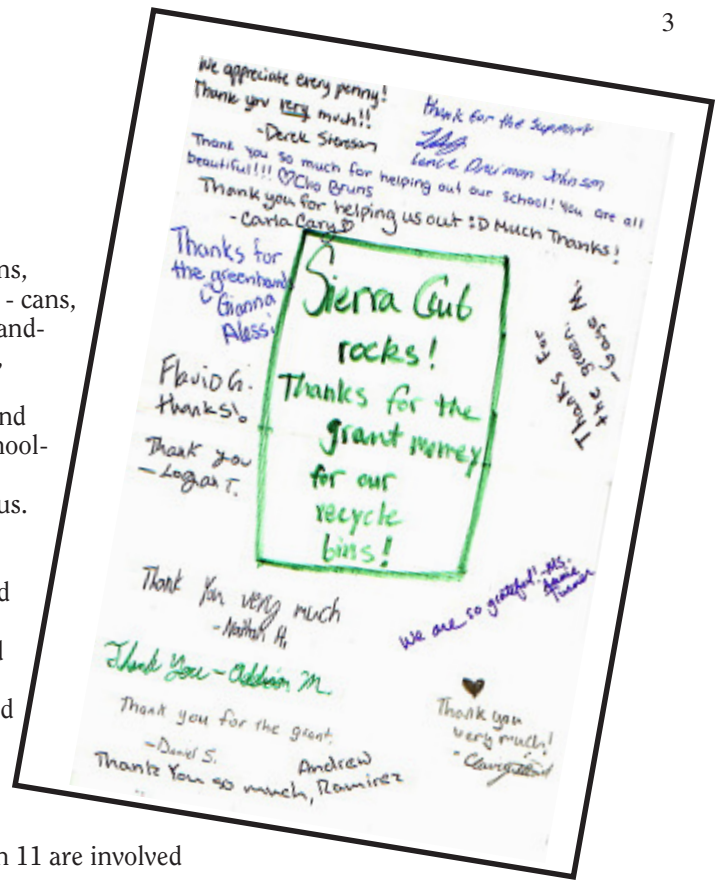 3
ns,
- cans,
and-
,
nd
hool-
us.
d
d
d
n 11 are involved
We appreciate every penny!
Thank you very much!!
-Derek
Thank for the support
Lance Johnson
Thank you so much for helping out our school! You are all
beautiful!!! ♡ Bruns
Thank you for helping us out :D Much Thanks!
-Carla Cary♡
Thanks for
the
- Gianna
Alessi
Flavio G.
thanks!
Thank you
- Logan T.
Sierra Club
rocks!
Thanks for the
grant money
for our
recycle
bins!
Thanks for
the green.
- Gage M.
Thank you very much
-Nathan H.
We are so grateful! -Ms.
Annie
Turner
Thank You - Addison M.
Thank you for the grant.
-Daniel S.
Thank You so much, Andrew
Ramirez
♥
Thank you
very much!